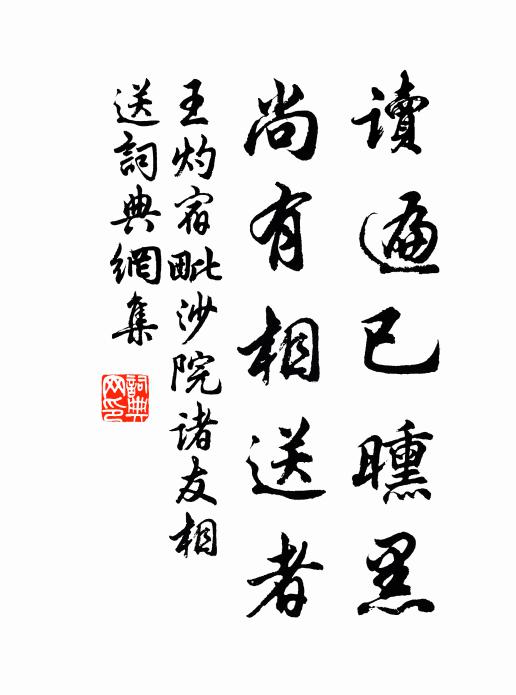 讀遍已曛黑
尚有相送者
王灼宿毗沙院諸友相
送詞典網集
詞典
网印